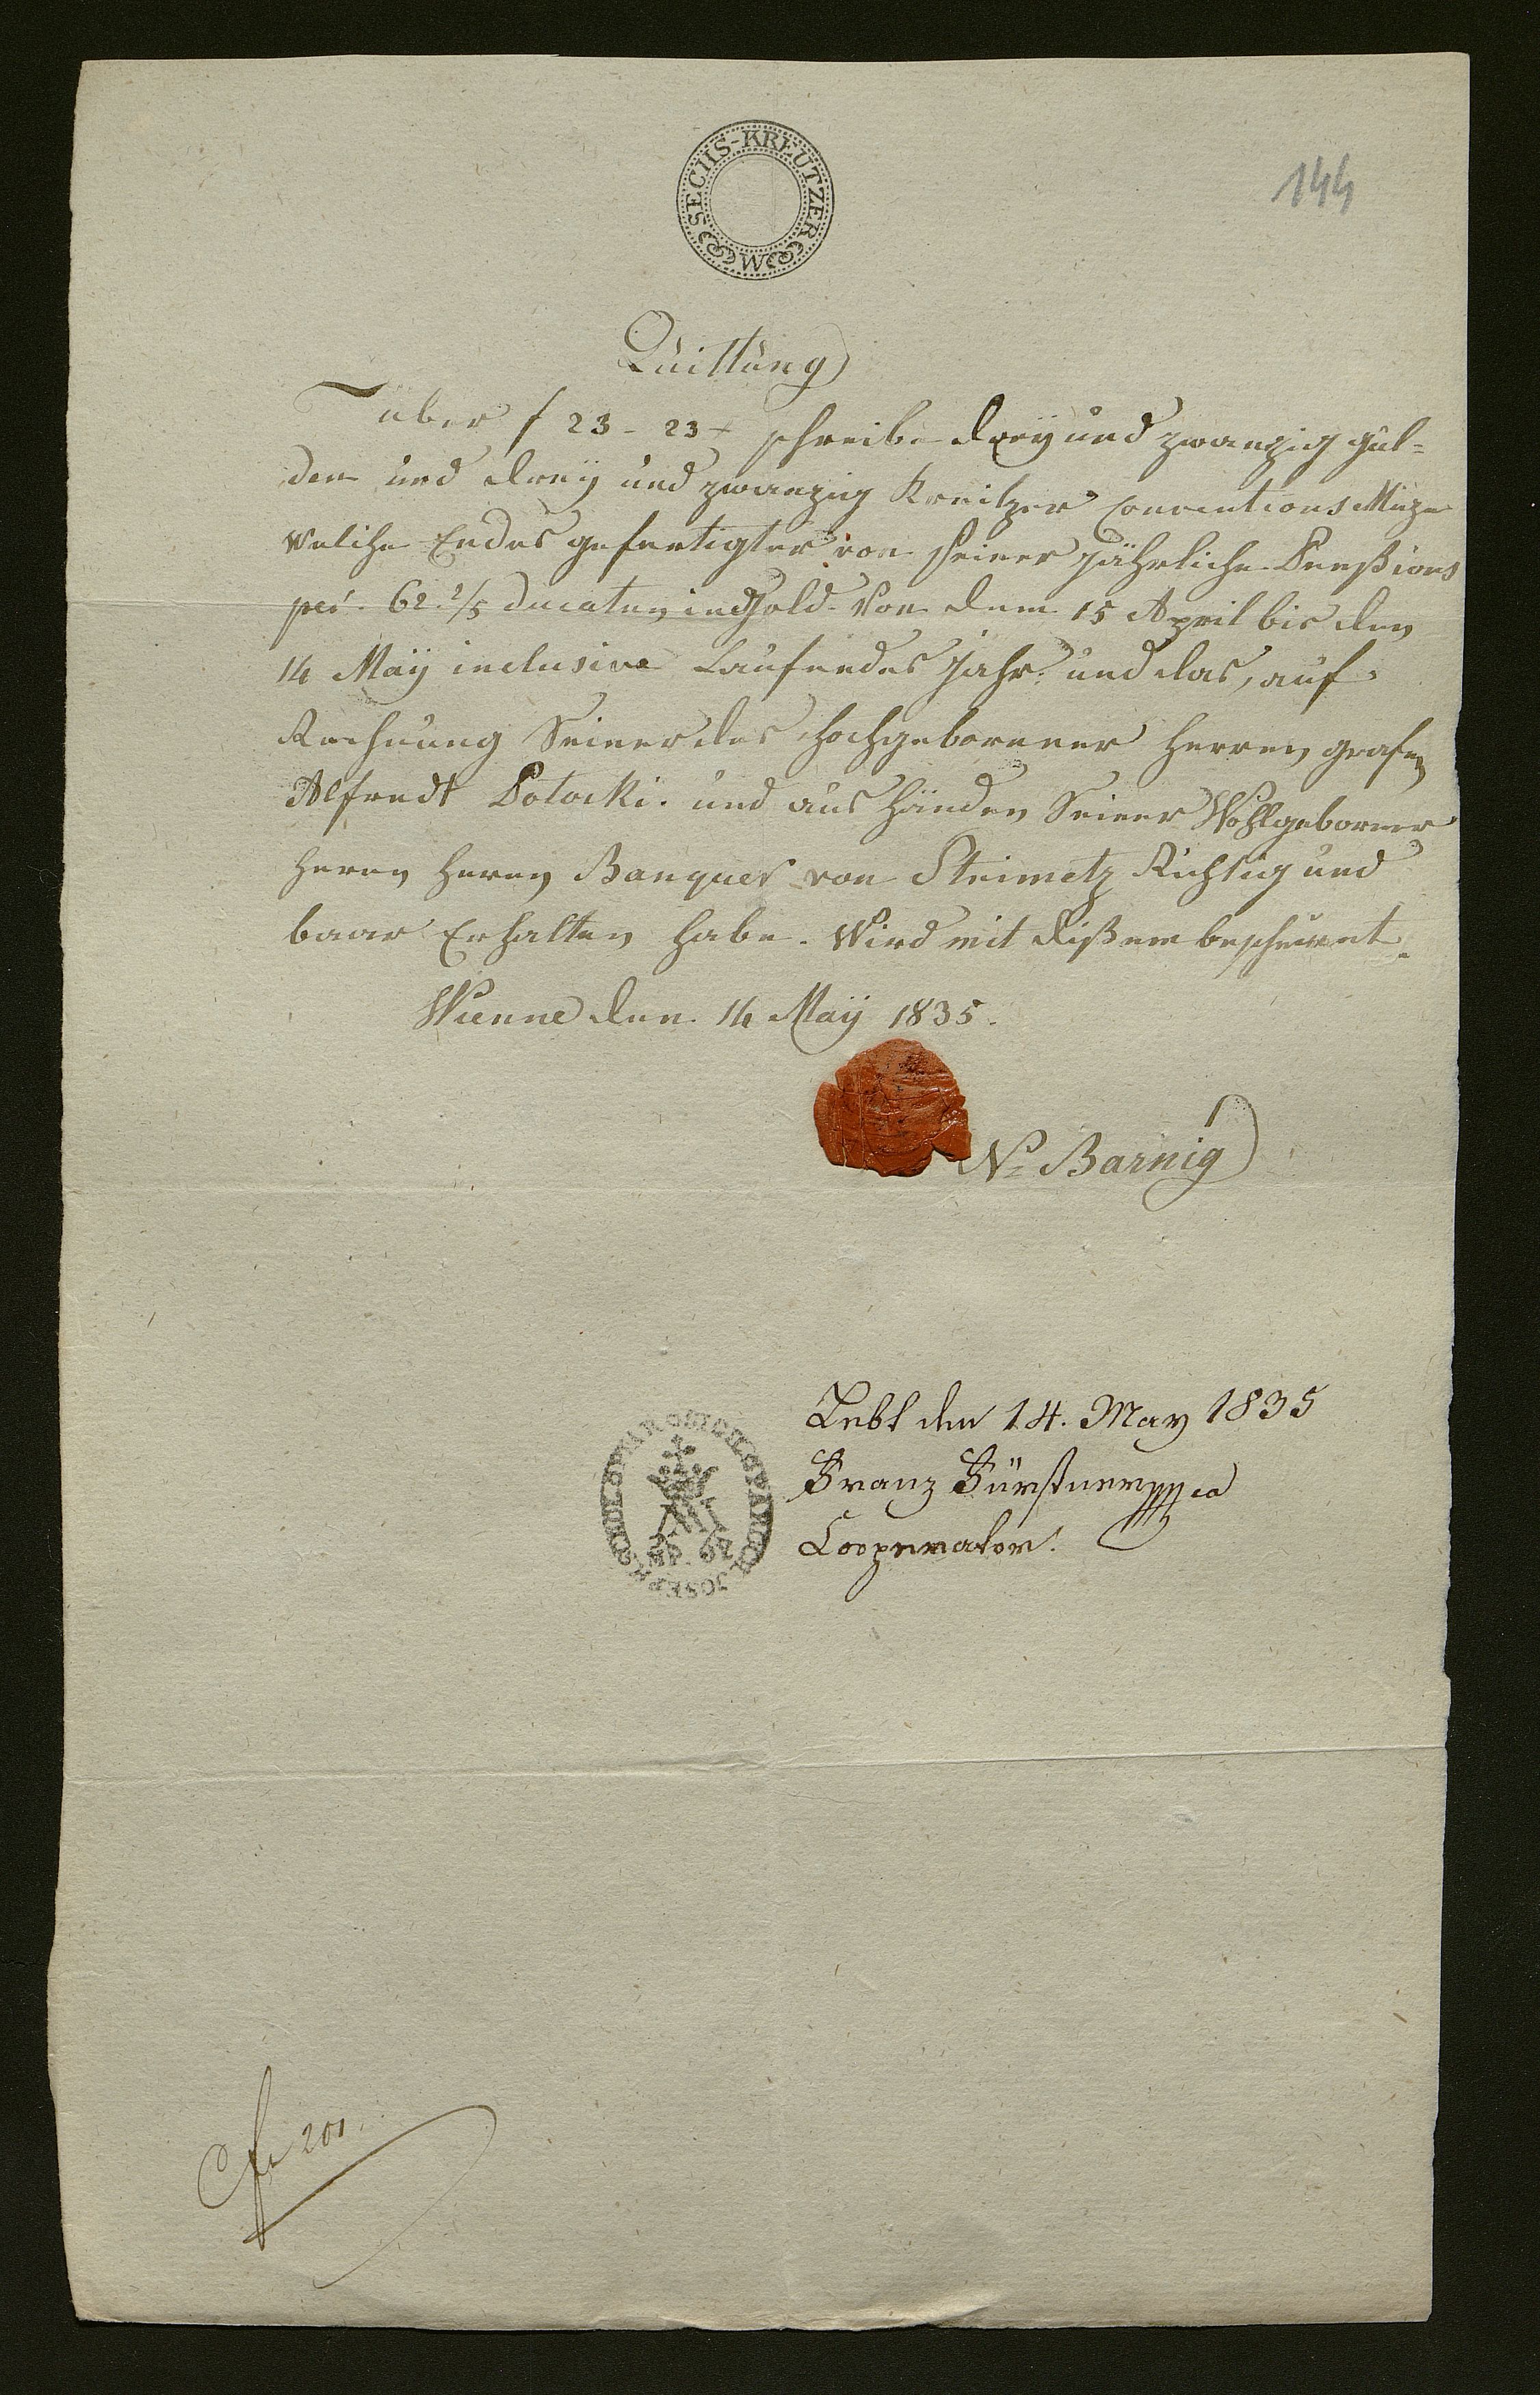 SECHS-KREUTZER
W
144
Quittung
über f 23 - 23 x schreibe dreÿ und zwanzig Gul-
den und dreÿ und zwanzig Kreitzer Conventions Münze
Welche Endes gefertigter von seiner Jährliche Penßions
per. 62. 2/5 ducaten in Gold. Von dem 15 April bis den
14 Maÿ inclusive Laufendes Jahr. und das, auf
Rechnung Seiner des Hochgebornner Herren Grafen
Alfredt Potocki. und aus Händen Seiner Wohlgeborner
Herrn Herrn Banquer von Steimetz Richtig und
baar Erhalten habe. Wird mit dißem bescheint.
Wienne den 14 Maÿ 1835.
N. Barnig
Lebt den 14. May 1835
Franz Fürstner mpia
Cooperator.
JOSEPH
201.